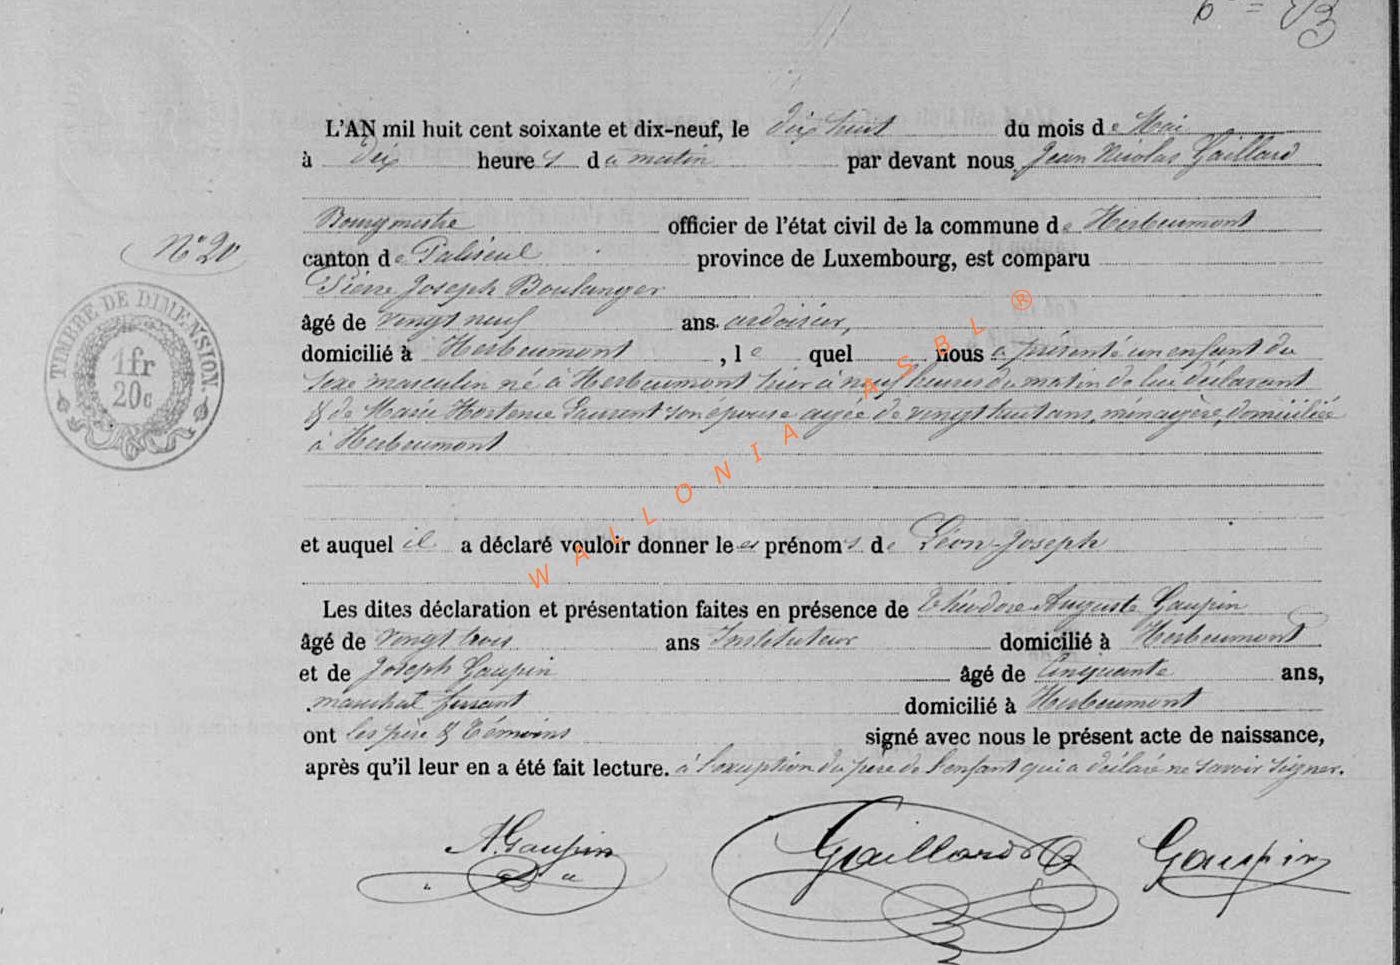 N° 20
TIMBRE DE DIMENSION.
1fr
20c
L'AN mil huit cent soixante et dix-neuf, le dix huit du mois de Mai
à dix heures du matin par devant nous Jean Nicolas Gaillard
Bourgmestre officier de l'état civil de la commune de Herbeumont
canton de Paliseul province de Luxembourg, est comparu
Pierre Joseph Boulanger
âgé de vingt neuf ans ardoisier,
domicilié à Herbeumont, le quel nous a présenté un enfant du
sexe masculin né à Herbeumont hier à neuf heures du matin de lui déclarant
& de Marie Hortense Laurent son épouse agée de vingt huit ans, ménagère, domiciliée
à Herbeumont
et auquel il a déclaré vouloir donner les prénoms de Léon-Joseph
Les dites déclaration et présentation faites en présence de Théodore Auguste Gaupin
âgé de vingt trois ans Instituteur domicilié à Herbeumont
et de Joseph Gaupin âgé de Cinquante ans,
maréchal ferrant domicilié à Herbeumont
ont les père & témoins signé avec nous le présent acte de naissance,
après qu'il leur en a été fait lecture. à l'exception du père de l'enfant qui a déclaré ne savoir signer.
A. Gaupin Gaillard Gaupin
WALLONIA ASBL ®